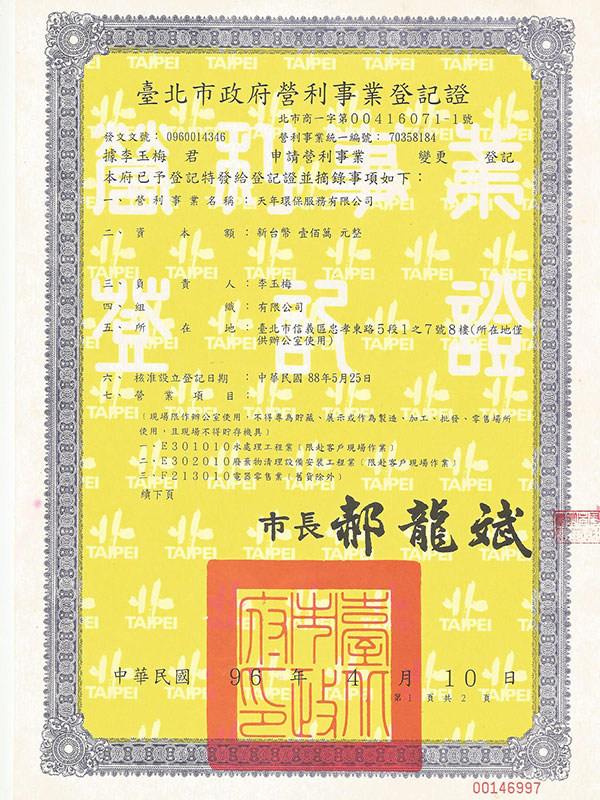 臺北市政府營利事業登記證
北市商一字第00416071-1號
發文文號： 0960014346 營利事業統一編號： 70358184
據李玉梅 君 申請營利事業 變更 登記
本府已予登記特發給登記證並摘錄事項如下：
一、營利事業名稱：天年環保服務有限公司
二、資本額：新台幣 壹佰萬 元整
三、負責人：李玉梅
四、組織：有限公司
五、所在地：臺北市信義區忠孝東路5段1之7號8樓(所在地僅
供辦公室使用)
六、核准設立登記日期：中華民國 88年5月25日
七、營業項目：
(現場限作辦公室使用，不得專為貯藏、展示或作為製造、加工、批發、零售場所
使用，且現場不得貯存機具)
一、E301010水處理工程業（限赴客戶現場作業）
二、E302010廢棄物清理設備安裝工程業（限赴客戶現場作業）
三、F213010電器零售業（舊貨除外）
續下頁
市長 郝龍斌
臺北市政府印
中華民國 96 年 4 月 10 日
第1頁共2頁
00146997
營利事業
登記證
TAIPEI